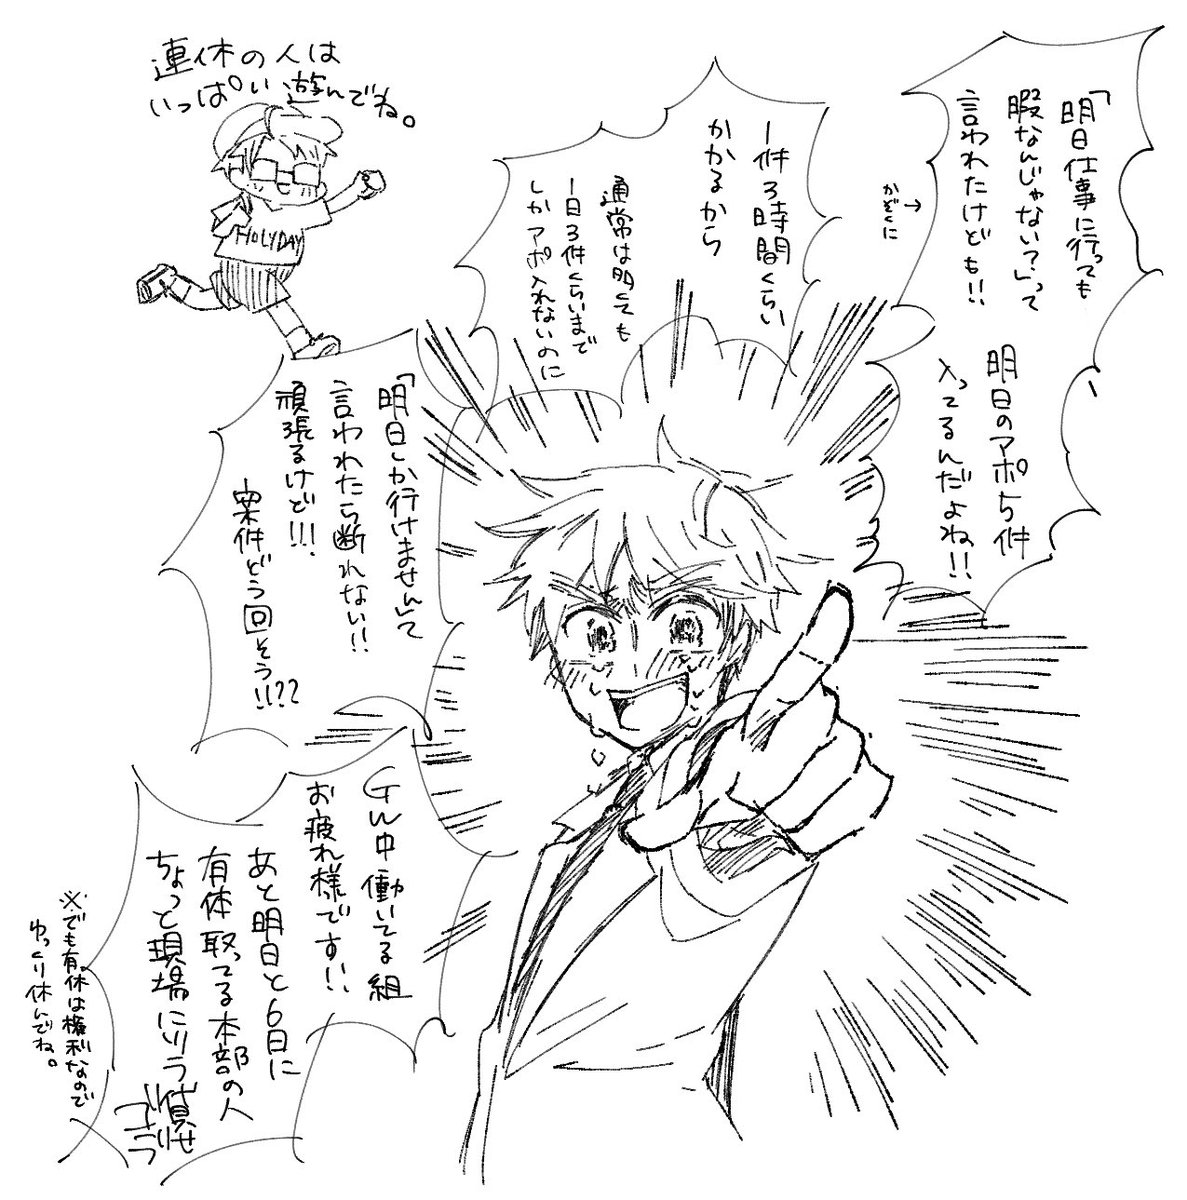 「明日仕事に行っても
暇なんじゃない？」って
言われたけども!!
→かぞくに
明日のアポ5件
入ってるんだよね!!
一件3時間くらい
かかるから
通常は多くても
一日3件くらいまで
しかアポ入れないのに
「明日しか行けません」て
言われたら断れない!!
頑張るけど!!!
案件どう回そう!!??
GW中働いてる組
お疲れ様です!!
あと明日と6日に
有休取ってる本部の人
ちょっと現場にツラ貸せ
ゴラ
※でも有休は権利なので
ゆっくり休んでね。
連休の人は
いっぱい遊んでね。
HOLYDAY